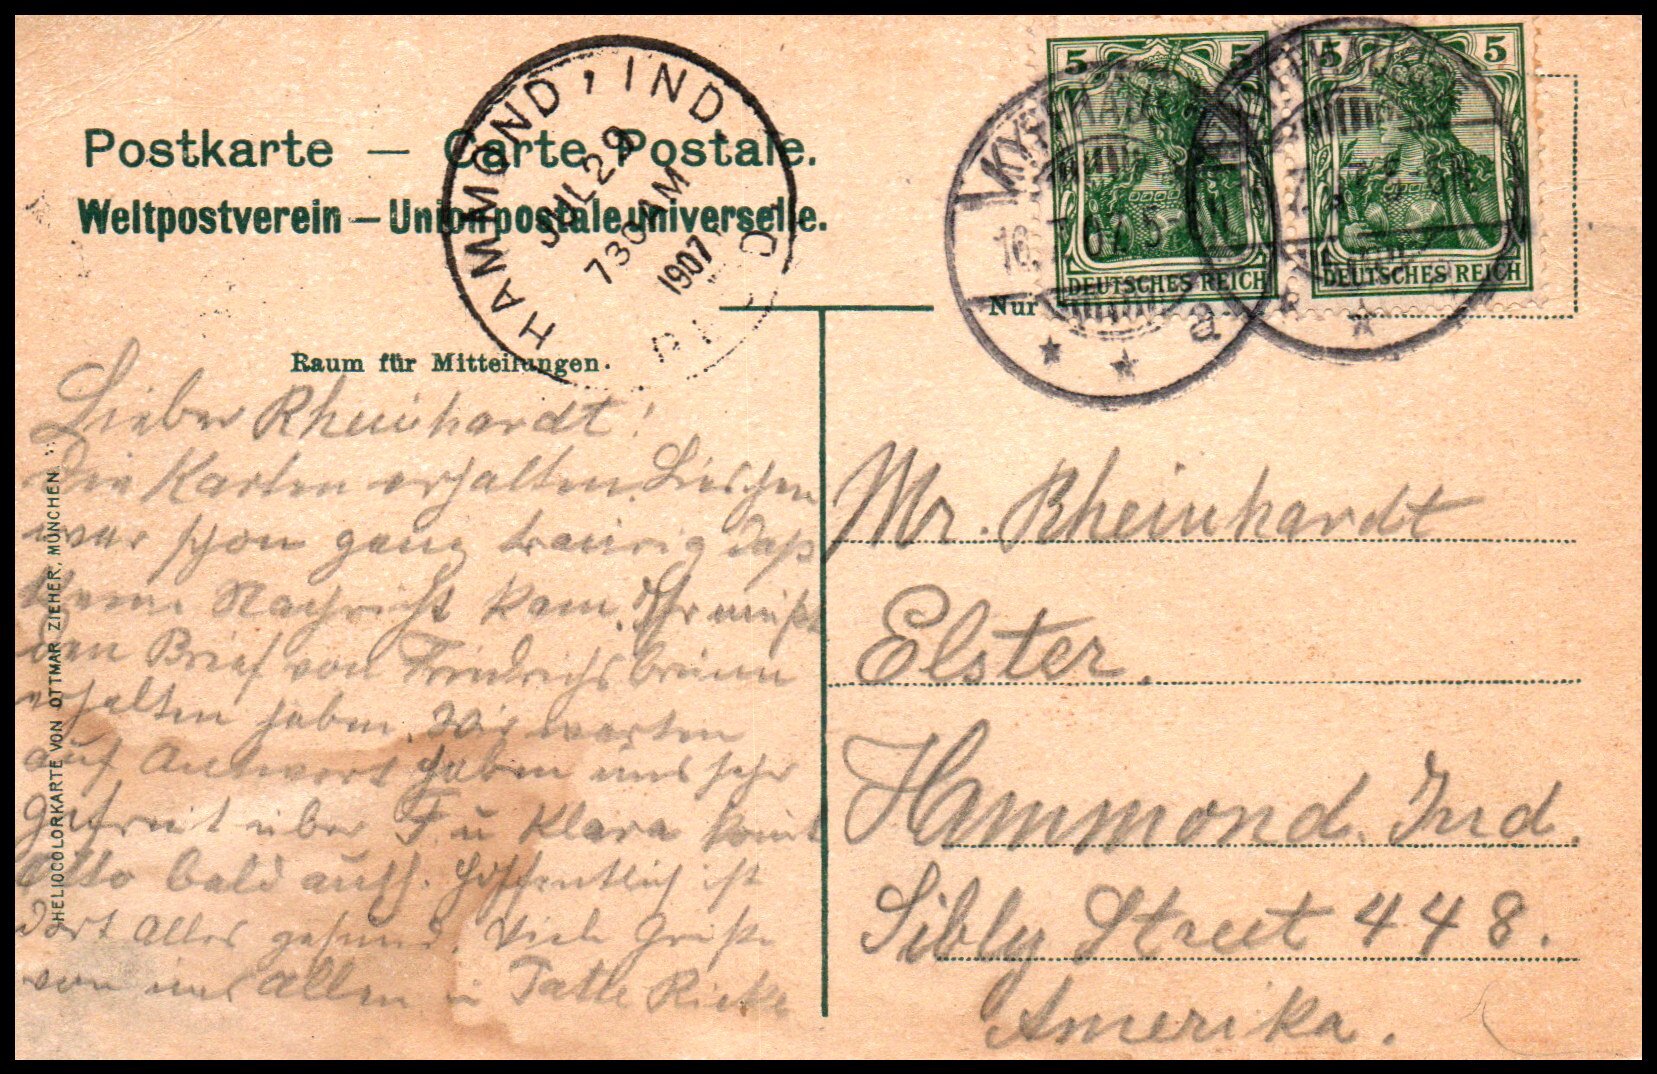 Postkarte — Carte Postale.
Weltpostverein — Union postale universelle.
HAMMOND, IND
JUL 29
730 AM
1907
REC'D
5 5
DEUTSCHES REICH
5 5
DEUTSCHES REICH
16. 7. 07. 5-
a
Nur
Raum für Mitteilungen.
Lieber Rheinhardt!
Die Karten erhalten. Lieschen
war schon ganz traurig daß
keine Nachricht kam. Ihr müßt
den Brief von Friedrichsbrunn
erhalten haben. Wir warten
auf Antwort haben uns sehr
gefreut über F u Klara kommt
Otto bald auch. Hoffentlich ist
dort Alles gesund. Viele Grüße
von uns Allen u Tante Rieke
Mr. Rheinhardt
Elster.
Hammond. Ind.
Sibly Street 448.
Amerika.
HELIOCOLORKARTE VON OTTMAR ZIEHER, MÜNCHEN